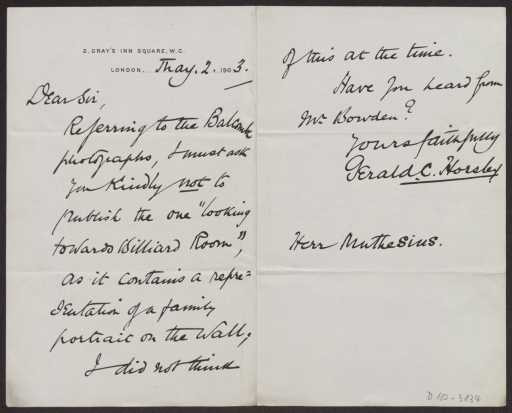 2, GRAY'S INN SQUARE, W.C.
LONDON, May. 2. 1903.
Dear Sir,
Referring to the Balcombe
photographs, I must ask
you kindly not to
publish the one "looking
towards Billiard Room",
as it contains a repre=
sentation of a family
portrait on the wall,
I did not think
of this at the time.
Have you heard from
Mr. Bowden?
Yours faithfully
Gerald. C. Horsley
Herr Muthesius.
D 102-3834